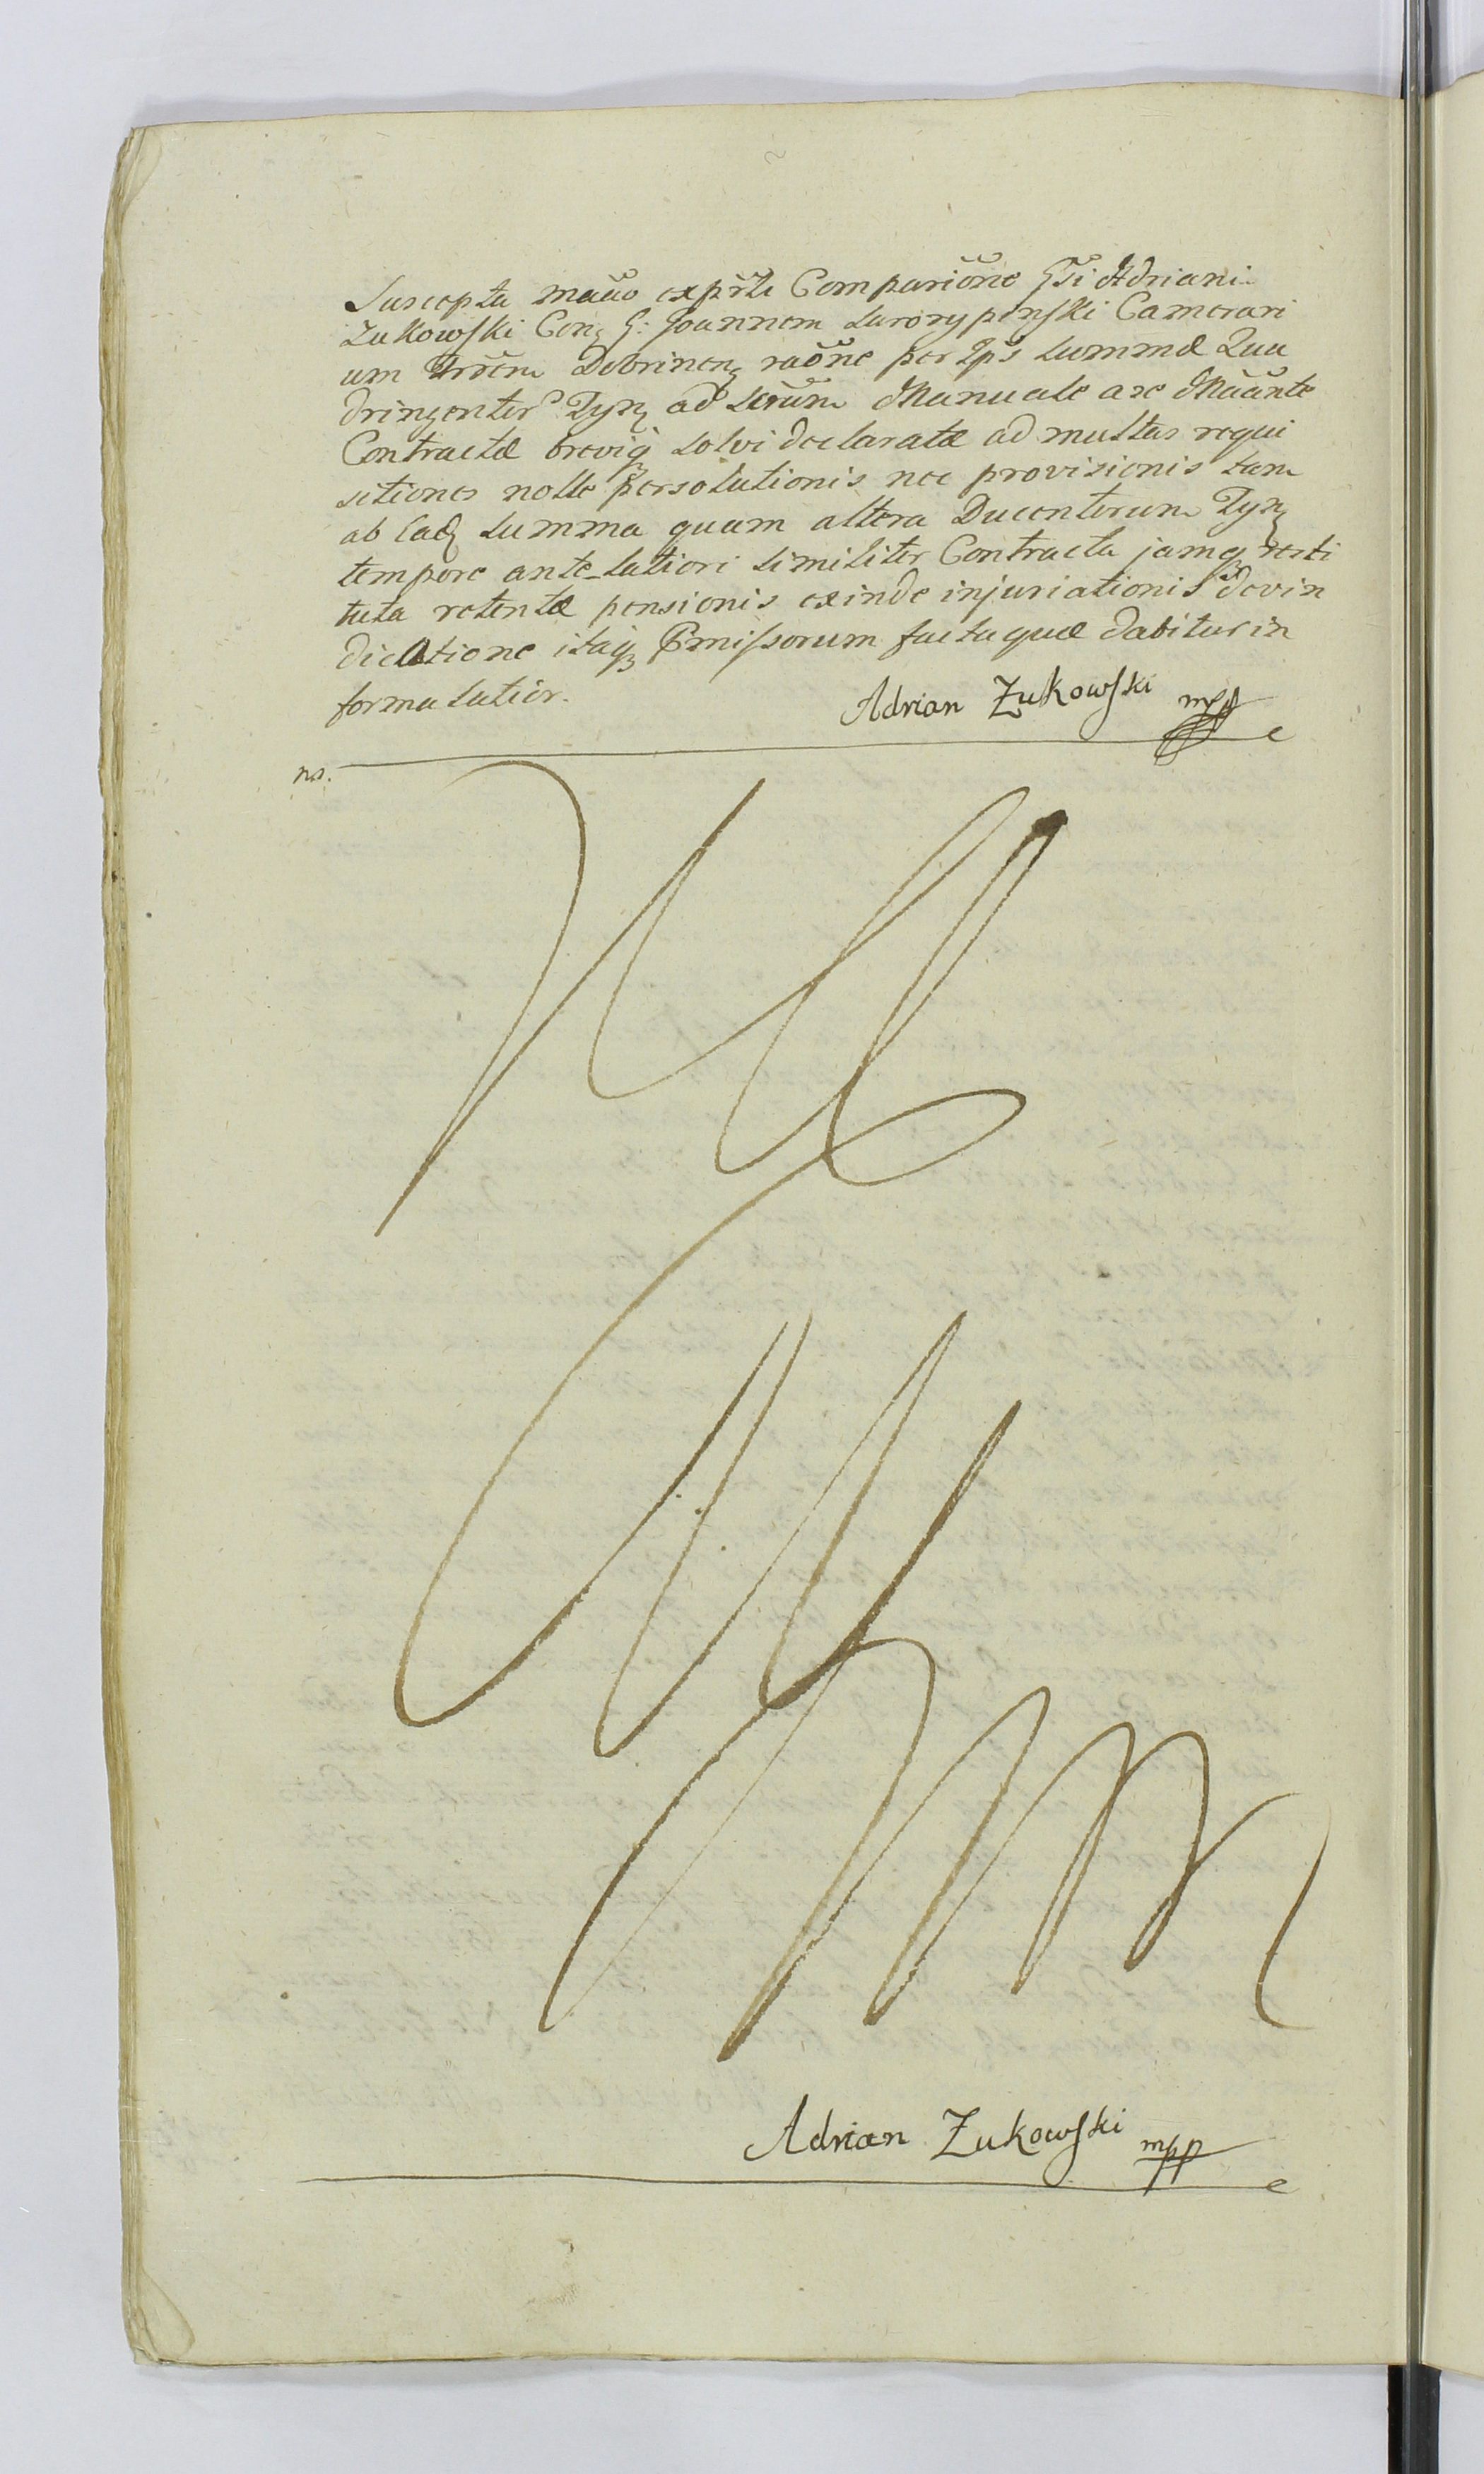 Suscepta mãuo expr̃te Compariõne Gsi Adriani
Zukowski Con: G: Joannem Surorypinski Camerari
um Trrẽm Dobrinen raõne per Ips Summæ Qua
dringentor Tyn ad scrũm Manuale ac Mãante
Contractæ breviq solvi declaratæ ad multas requi
sitiones nolle persolutionis nec provisionis tam
ab Ead Summa quam altera Ducentorum Tyn
tempore ante latiori similiter Contracta jamq resti
tuta retentæ pensionis exinde injuriationis devin
dicatione itaq Pmissorum facta quæ dabitur in
forma latior.
Adrian Zukowski mpp
no.
Adrian Zukowski mpp